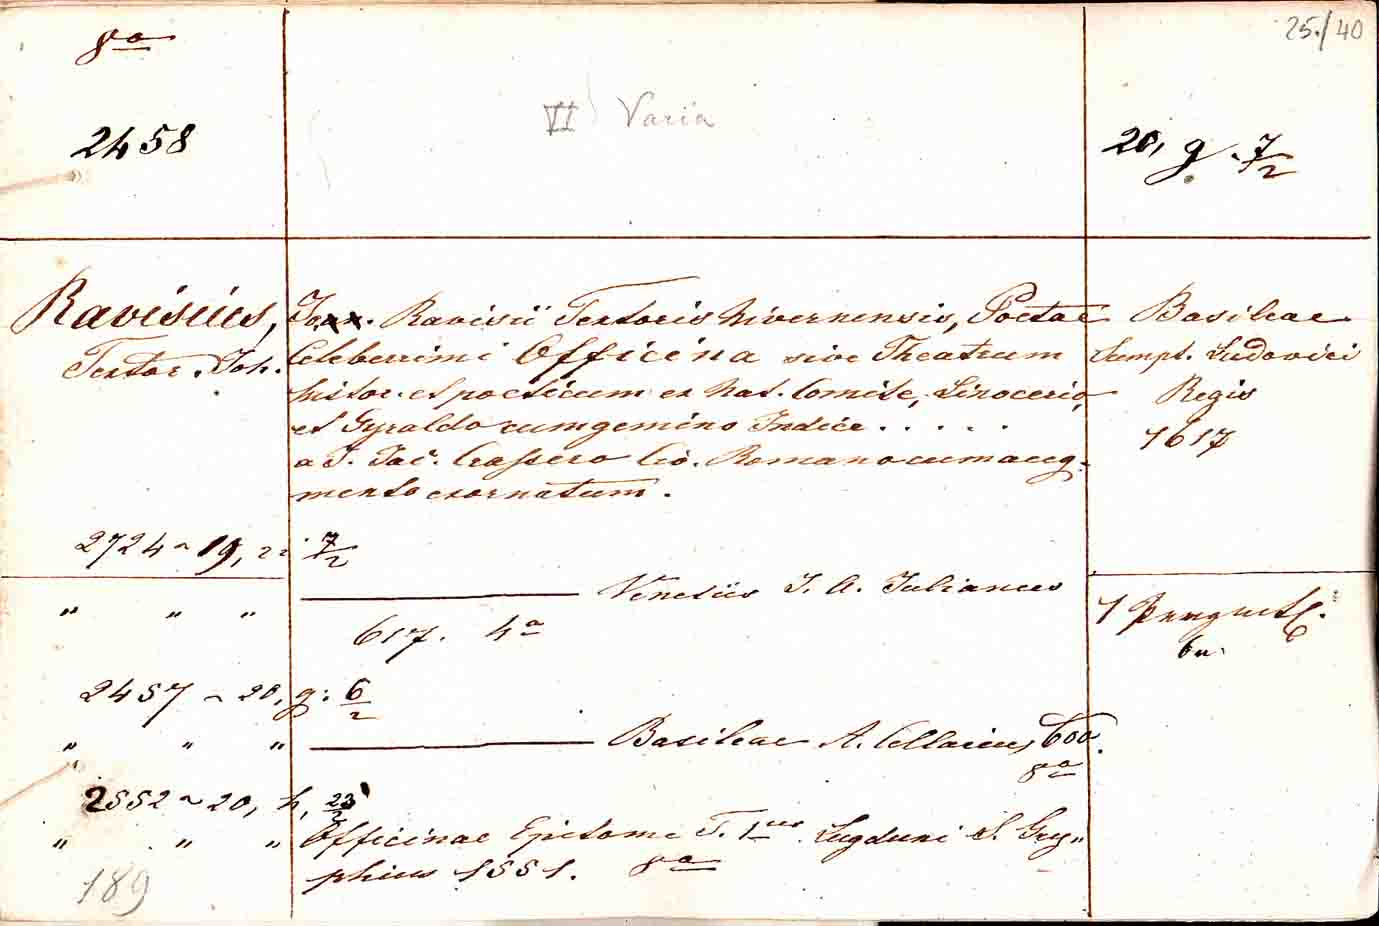 8º
25./40
VI Varia
2458
20, g. 7/2
Ravisius,
Textor. Joh.
Ravisii Textoris Nivernensis, Poetae
Celeberrimi Officina sive Theatrum
histor. et poeticum ex Nat. Comite, Linocerio,
et Gyraldo cum gemino Indice . . . . .
a J. Jac. Grassero Co. Romano cum aug-
mento exornatum.
Basileae
Sumpt. Ludovici
Regis
1617
2724 ~ 19, 22. 7/2
" " " ——— Venetiis J. A. Julianus
617. 4º
1
2457 ~ 20, g. 6/2
" " " ——— Basileae A. Cellarius, 600.
8º
2552 ~ 20, h, 23/2
" " " Officinae Epitome T. 1us Lugduni S. Gry-
phius 1551. 8º
189